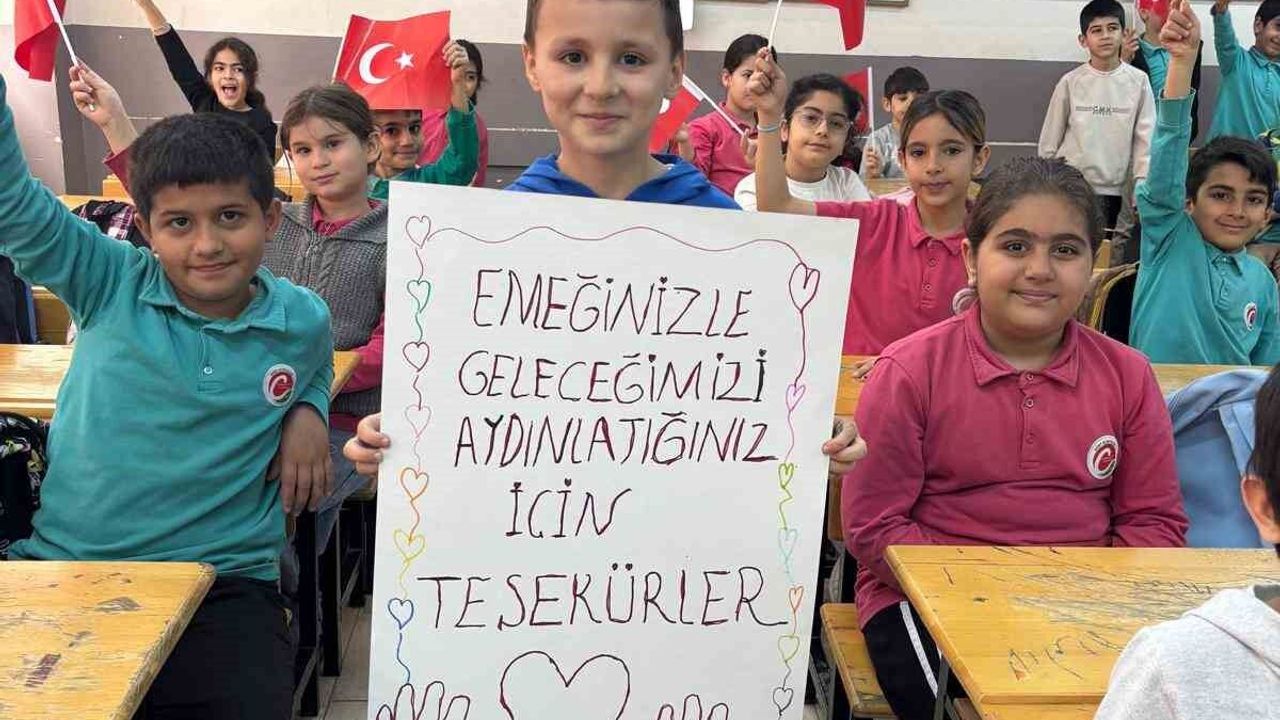 EMEĞİNİZLE
GELECEĞİMİZİ
AYDINLATIĞINIZ
İCİN
TESEKÜRLER